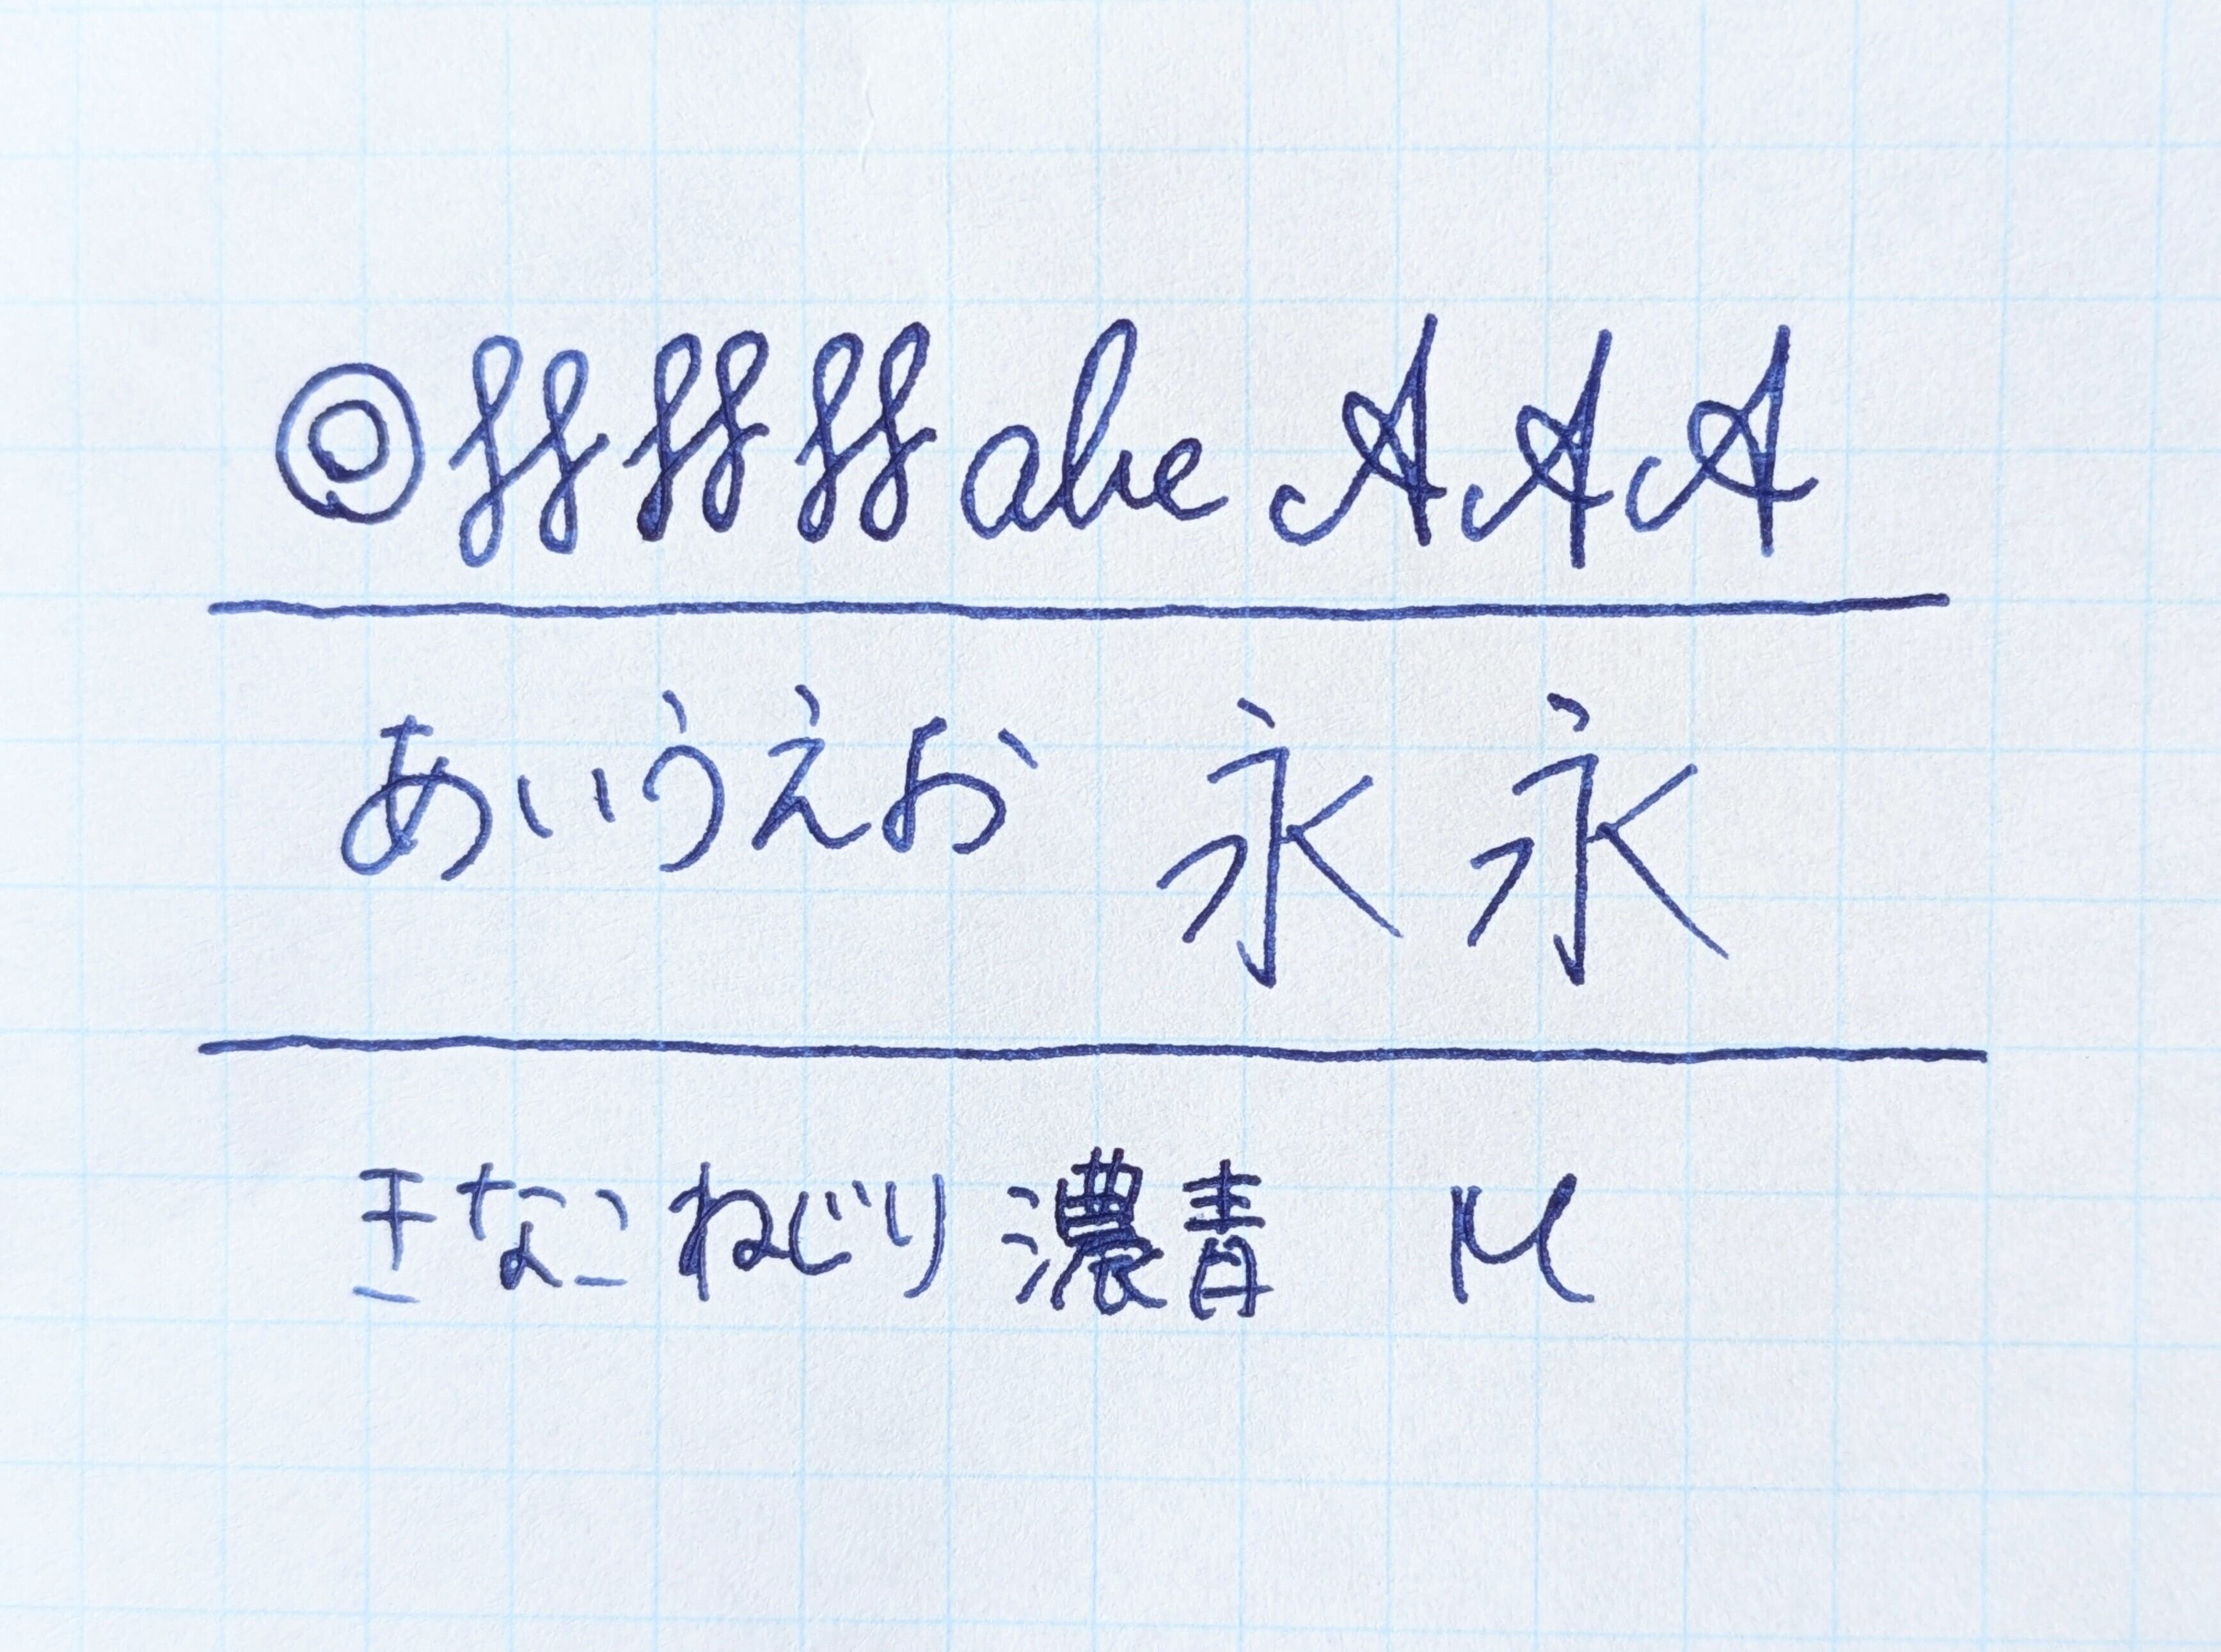 ◎ ffffff abc AAA
あいうえお 永永
きなこねじり 濃青 M